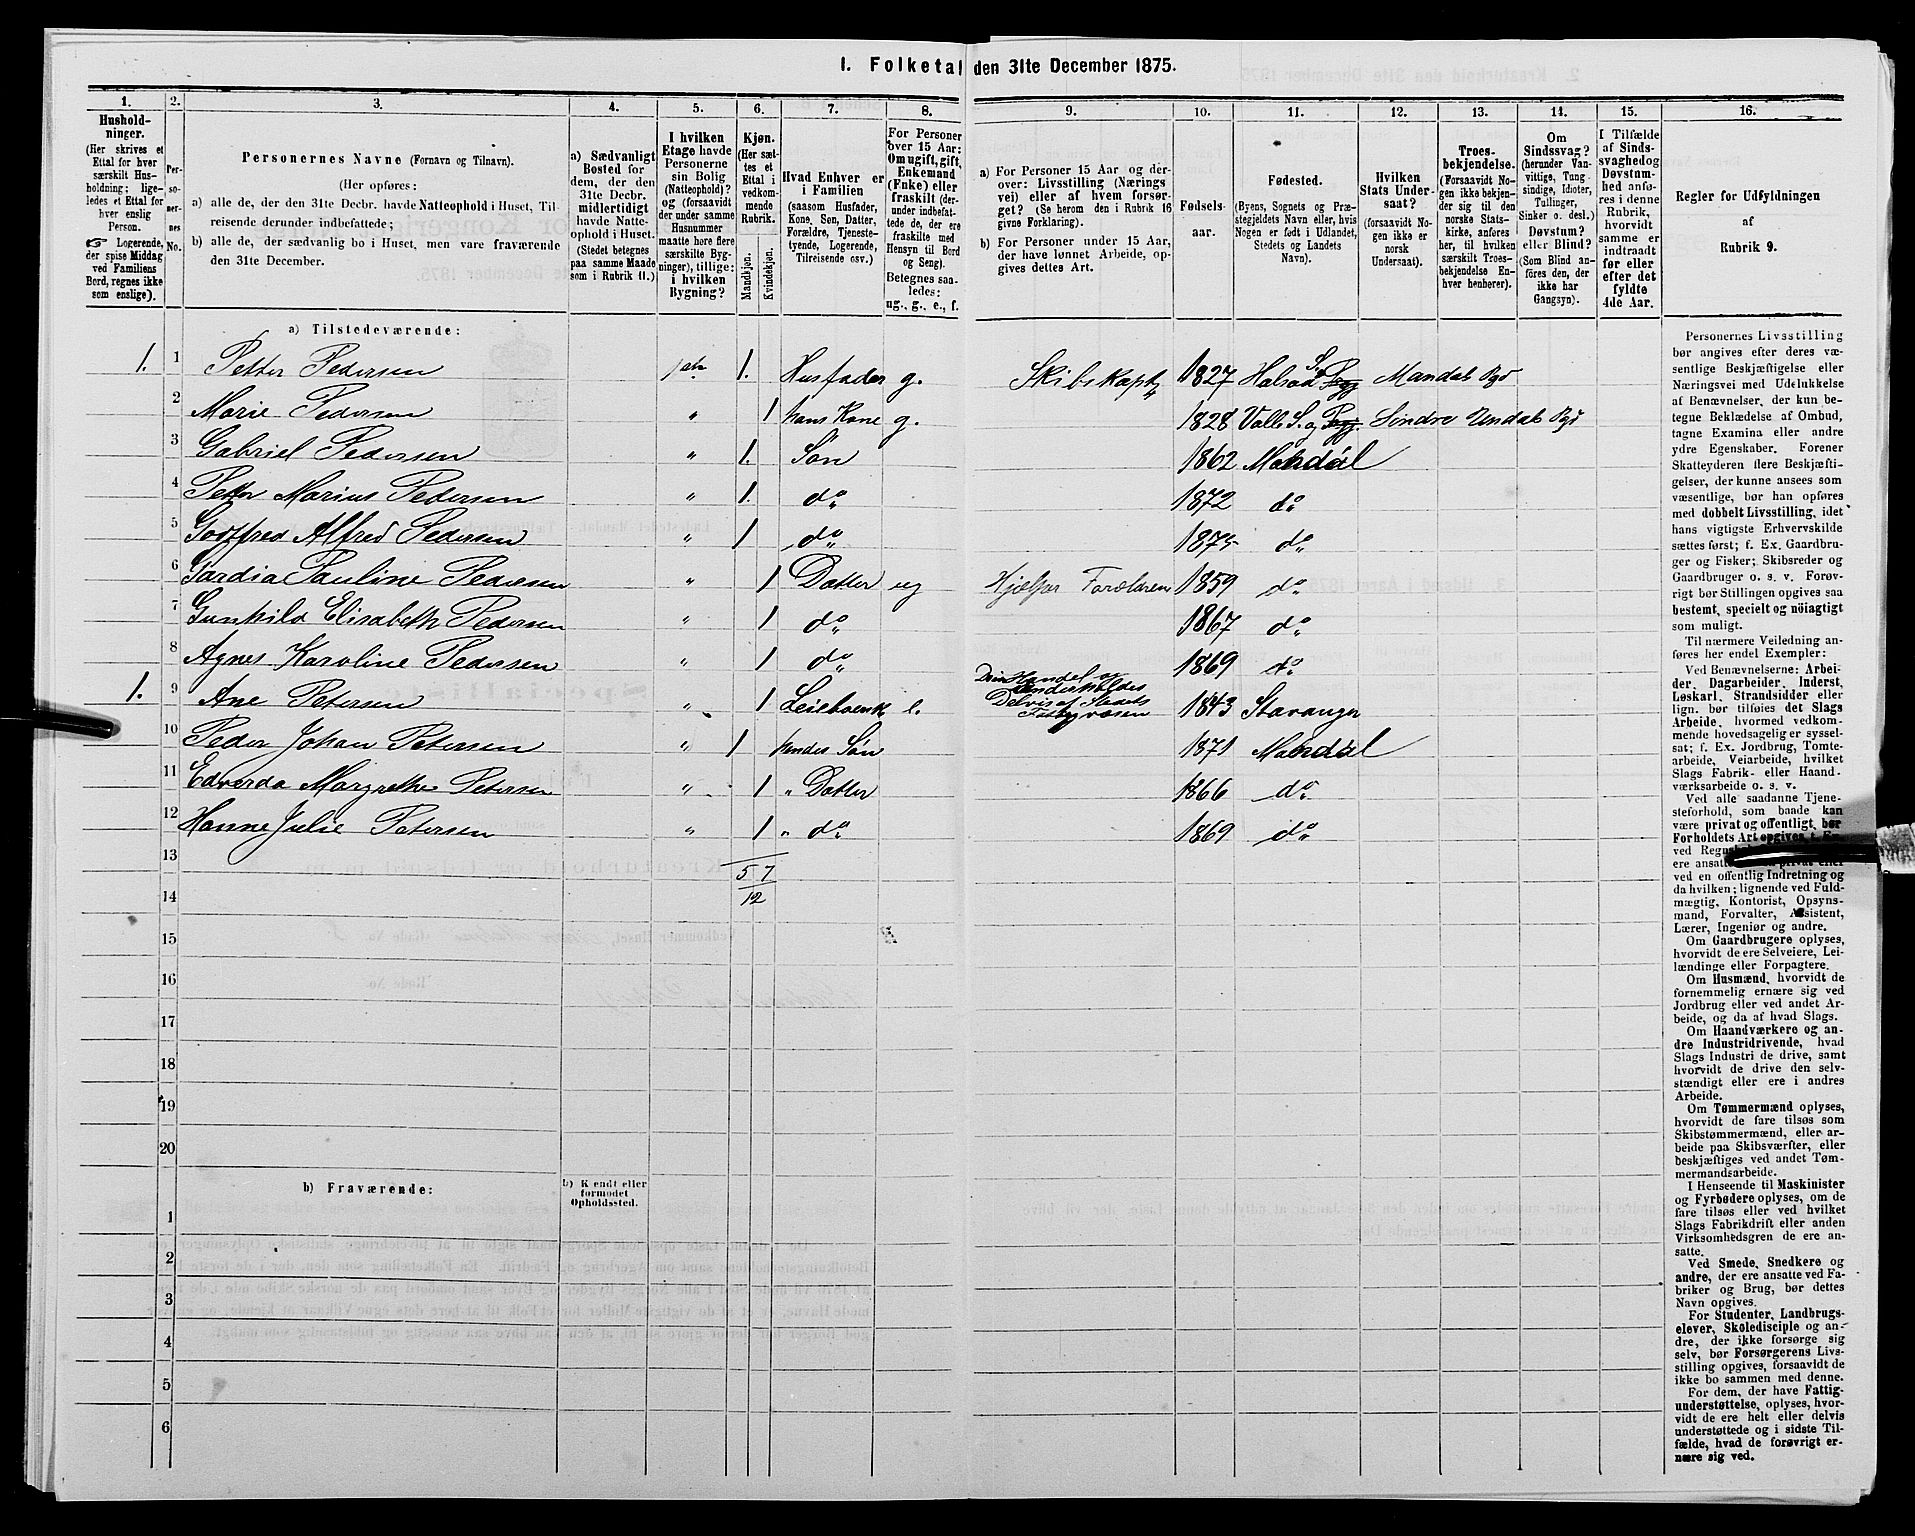 1. Folketal den 31te December 1875.
1. 2. 3. 4. 5. 6. 7. 8. 9. 10. 11. 12. 13. 14. 15. 16.
Hushold-
ninger.
(Her skrives et
Ettal for hver
særskilt Hus-
holdning; lige-
ledes et Ettal for
hver enslig
Person.
☞ Logerende,
der spise Middag
ved Familiens
Bord, regnes ikke
som enslige).
Per-
so-
ner-
nes
No.
Personernes Navne (Fornavn og Tilnavn).
(Her opføres:
a) alle de, der den 31te Decbr. havde Natteophold i Huset, Til-
reisende derunder indbefattede;
b) alle de, der sædvanlig bo i Huset, men vare fraværende
den 31te December.
a) Sædvanligt
Bosted for
dem, der den
31te Decbr.
midlertidigt
havde Natte-
ophold i Huset.
(Stedet betegnes
paa samme Maade
som i Rubrik 11.)
I hvilken
Etage havde
Personerne
sin Bolig
(Natteophold)?
og (forsaavidt
der under samme
Husnummer
maatte høre flere
særskilte Byg-
ninger), tillige:
i hvilken
Bygning?
Kjøn.
(Her sæt-
tes et
Ettal i
vedkom-
mende
Rubrik.
Mandkjøn.
Kvindekjøn.
Hvad Enhver er
i Familien
(saasom Husfader,
Kone, Søn, Datter,
Forældre, Tjeneste-
tyende, Logerende,
Tilreisende osv.)
For Personer
over 15 Aar:
Om ugift, gift,
Enkemand
(Enke) eller
fraskilt (der-
under indbefat-
tede de, der ere
fraskilte med
Hensyn til Bord
og Seng).
Betegnes saa-
ledes:
ug., g., e., f.
a) For Personer 15 Aar og der-
over: Livsstilling (Nærings-
vei) eller af hvem forsør-
get? (Se herom den i Rubrik 16
givne Forklaring).
b) For Personer under 15 Aar,
der have lønnet Arbeide, op-
gives dettes Art.
Fødsels-
aar.
Fødested.
(Byens, Sognets og Præ-
stegjeldets Navn eller, hvis
Nogen er født i Udlandet,
Stedets og Landets
Navn).
Hvilken
Stats Under-
saat?
(forsaavidt No-
gen ikke er
norsk
Undersaat).
Troes-
bekjendelse.
(Forsaavidt No-
gen ikke bekjen-
der sig til den
norske Stats-
kirke, anføres
her, til hvilken
særskilt Troes-
bekjendelse En-
hver henhører).
Om
Sindssvag?
(herunder Van-
vittige, Tung-
sindige, Idioter,
Tullinger,
Sinker o. desl.)
Døvstum?
eller Blind?
(Som Blind an-
føres den, der
ikke har
Gangsyn).
I Tilfælde
af Sinds-
svaghed og
Døvstum-
hed anfø-
res i denne
Rubrik,
hvorvidt
samme er
indtraadt
før eller
efter det
fyldte
4de Aar.
Regler for Udfyldningen
af
Rubrik 9.
a) Tilstedeværende:
1. 1 Petter Pedersen 1. Husfader g. Skibskapt 1827 Halsaa S. Mandals Pgd
2 Marie Pedersen " 1 hans Kone g. 1828 Valle S. og Søndre Undals Pgd
3 Gabriel Pedersen " 1. Søn 1862 Mandal
4 Petter Marius Pedersen " 1. do 1872 do
5 Godffred Alfred Pedersen " 1 do 1875 do
6 Pauline Pedersen " 1 Datter ug Hjelper Forældrene 1859 do
7 Gunhild Elisabeth Pedersen " 1 do 1867 do
8 Agnes Karoline Pedersen " 1 do 1869 do
1. 9 Ane Petersen " 1 e. Handel og
Delvis af Stedets
1843 Stavanger
10 Peder Johan Petersen " 1 hendes Søn 1871 Mandal
11 Edvarda Margrethe Petersen " 1 " Datter 1866 do
12 Hanne Julie Petersen " 1 " do 1869 do
13
5 7
14
12
15
16
17
18
19
20
b) Fraværende:
b) Kjendt eller
formodet
Opholdssted.
1
2
3
4
5
6
Personernes Livsstilling
bør angives efter deres væ-
sentlige Beskjæftigelse eller
Næringsvei med Udelukkelse
af Benævnelser, der kun be-
tegne Beklædelse af Ombud,
tagne Examina eller andre
ydre Egenskaber. Forener
Skatteyderen flere Beskjæfti-
gelser, der kunne ansees som
væsentlige, bør han opføres
med dobbelt Livsstilling, idet
hans vigtigste Erhvervskilde
sættes først; f. Ex. Gaardbru-
ger og Fisker; Skibsreder og
Gaardbruger o. s. v. Forøv-
rigt bør Stillingen opgives saa
bestemt, specielt og nöiagtigt
som muligt.
Til nærmere Veiledning an-
føres her endel Exempler:
Ved Benævnelserne: Arbei-
der, Dagarbeider, Inderst,
Løskarl, Strandsidder eller
lign. bør tilføies det Slags
Arbeide, hvormed vedkom-
mende hovedsagelig er syssel-
sat; f. Ex. Jordbrug, Tomte-
arbeide, Veiarbeide, hvilket
Slags Fabrik- eller Haand-
værksarbeide o. s. v.
Ved alle saadanne Tjene-
steforhold, som baade kan
være privat og offentligt, bør
Forholdets Art opgives,
ved
ere ansatte
ved en offentlig Indretning og
da hvilken; lignende ved Fuld-
mægtig, Kontorist, Opsyns-
mand, Forvalter, Assistent,
Lærer, Ingeniør og andre.
Om Gaardbrugere oplyses,
hvorvidt de ere Selveiere, Lei-
lændinge eller Forpagtere.
Om Husmænd, hvorvidt de
fornemmelig ernære sig ved
Jordbrug eller ved andet Ar-
beide, og da af hvad Slags.
Om Haandværkere og an-
dre Industridrivende, hvad
Slags Industri de drive, samt
hvorvidt de drive den selv-
stændigt eller ere i andres
Arbeide.
Om Tømmermænd oplyses,
hvorvidt de fare tilsøs som
Skibstømmermænd, eller ar-
beide paa Skibsværfter, eller
beskjæftiges ved andet Tøm-
mermandsarbeide.
I Henseende til Maskinister
og Fyrbødere oplyses, om de
fare tilsøs eller ved hvilket
Slags Fabrikdrift eller anden
Virksomhedsgren de ere an-
satte.
Ved Smede, Snedkere og
andre, der ere ansatte ved Fa-
briker og Brug, bør dettes
Navn opgives.
For Studenter, Landbrugs-
elever, Skoledisciple og an-
dre, der ikke forsørge sig
selv, bør Forsørgerens Livs-
stilling opgives, forsaavidt de
ikke bo sammen med denne.
For dem, der have Fattig-
understøttelse, oplyses, hvor-
vidt de ere helt eller delvis
understøttede og i sidste Til-
fælde, hvad de forøvrigt er-
nære sig ved.